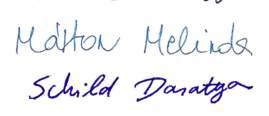 Márton Melinda
Schild Doratya